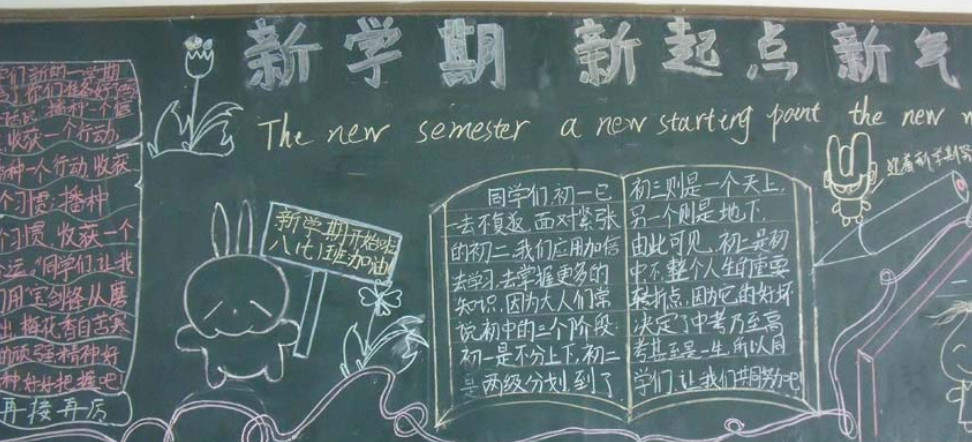 新学期 新起点 新气
The new semester a new starting point the new
新学期开始啦
八(七)班加油
们新的一学期
播种一个信
收获一个行动
种一个行动 收获
个习惯; 播种
个习惯 收获一个
命运。同学们 让我
们用"宝剑锋从磨
出 梅花香自苦寒
的顽强精神好
好好把握吧!
再接再厉
同学们,初一已
去不复返,面对紧张
的初二,我们应用加倍
去学习,去掌握更多的
知识,因为大人们常
说,初中的三个阶段:
初一是不分上下,初二
是两级分划,到了
初三则是一个天上,
另一个则是地下.
由此可见,初二是初
中不,整个人生的重要
转折点,因为它的好坏
决定了中考乃至高
考甚至是一生,所以同
学们,让我们共同努力吧!